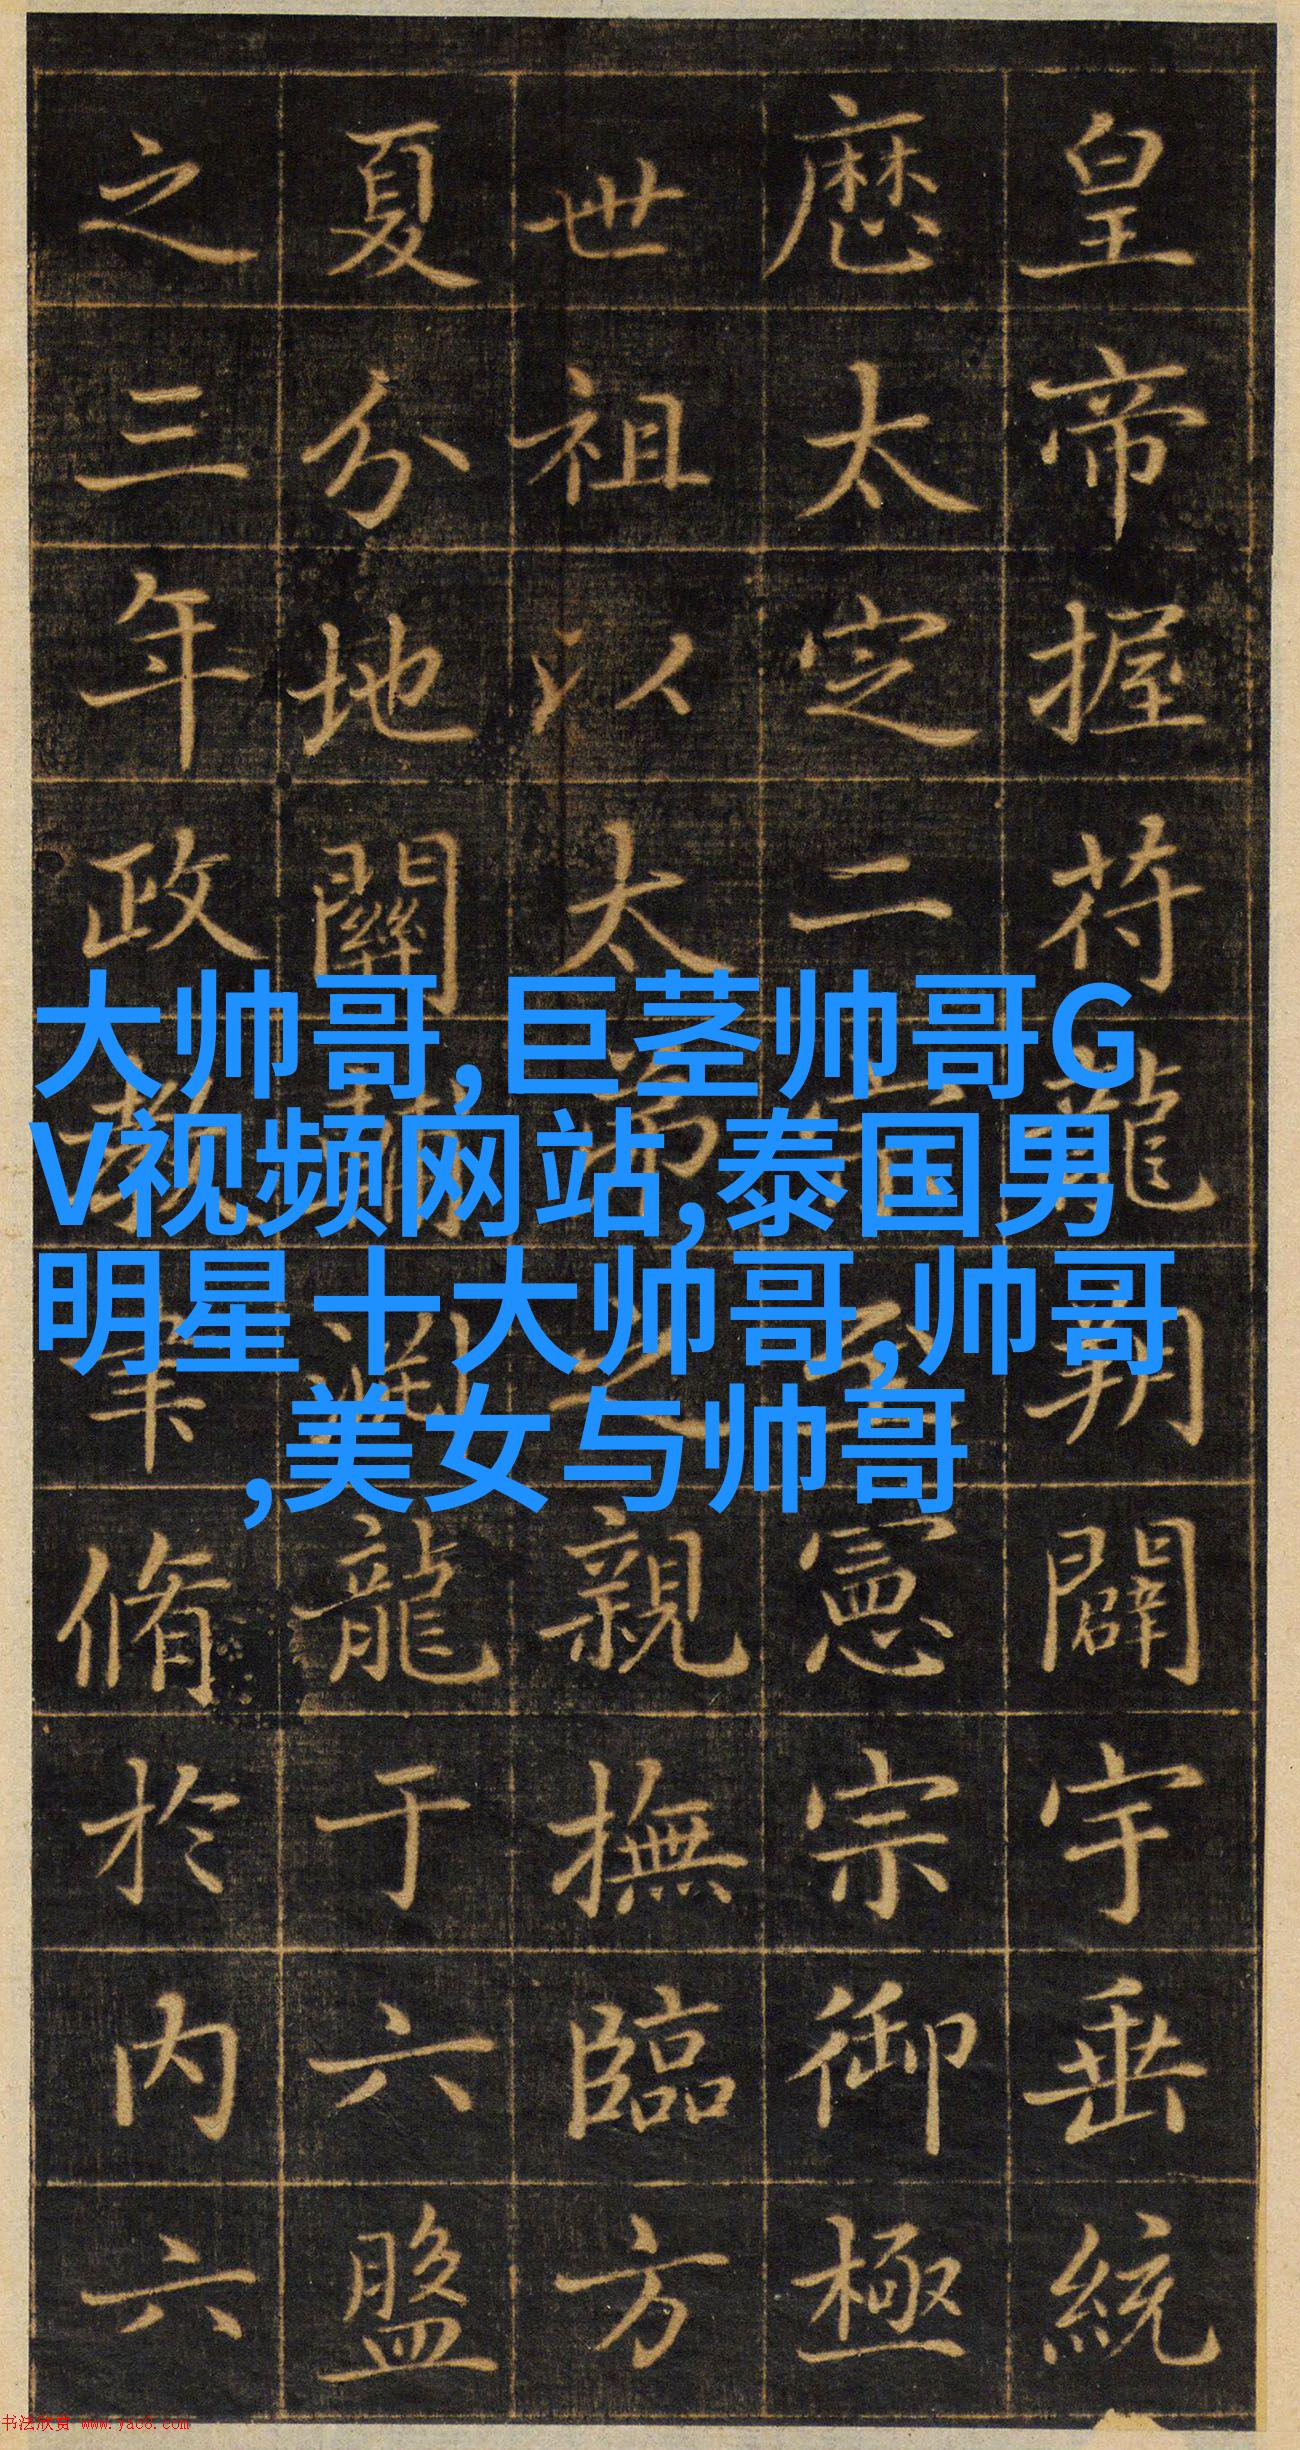 皇帝握符龍朔闢宇垂統
厯太定二至憲宗御極
世祖以太弟之親撫臨方
夏分地關隴淵龍于六盤
之三年政教聿脩於内六
大帅哥,巨茎帅哥G
V视频网站,泰国男
明星十大帅哥,帅哥
,美女与帅哥
书法欣赏 www.yac8.com